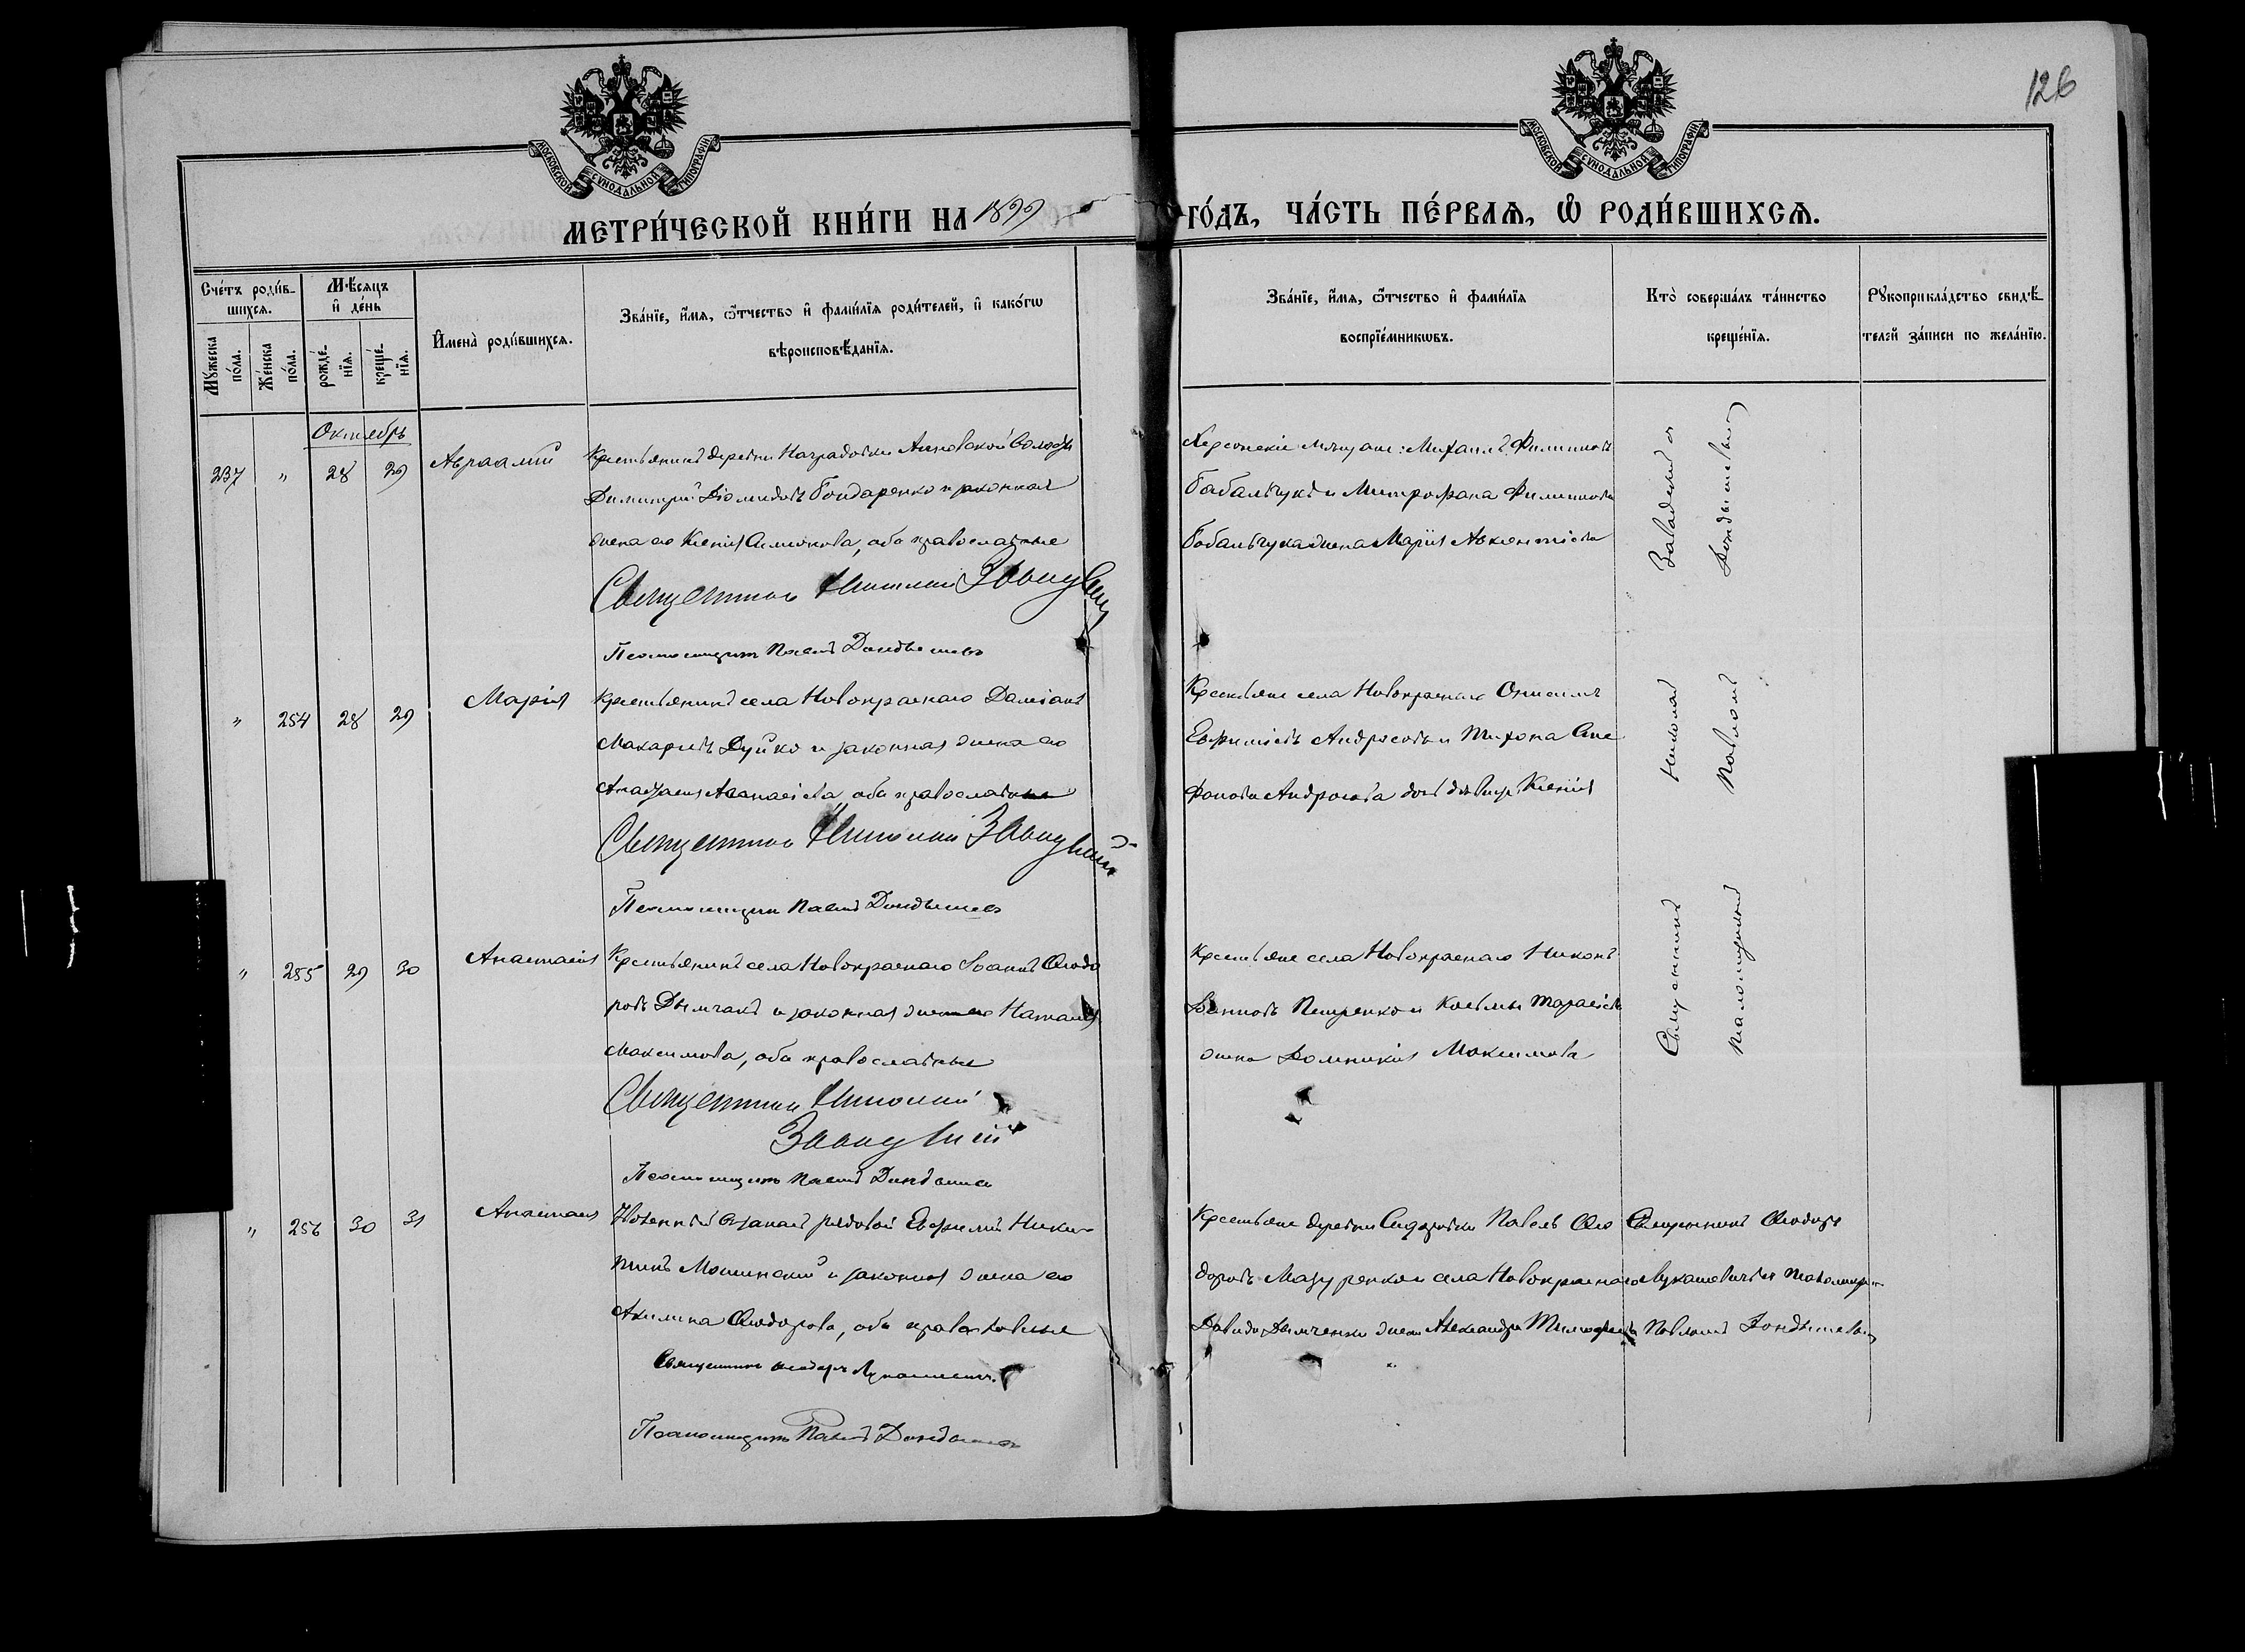 126
МОСКОВСКОЙ СУНОДАЛЬНОЙ ТИПОГРАФІИ
МОСКОВСКОЙ СУНОДАЛЬНОЙ ТИПОГРАФІИ
МЕТРИ́ЧЕСКОЙ КНИ́ГИ НА 1899
ГО́ДЪ, ЧА́СТЬ ПЕ́РВАѦ, Ѽ РОДИ́ВШИХСѦ.
Сче́тъ роди́в-
шихсѧ.
Мꙋжеска
по́ла.
Же́нска
по́ла.
Мѣ́сѧцъ
и҆ де́нь
рожде́-
нїѧ.
креще́-
нїѧ.
И҆мена̀ роди́вшихсѧ.
Зва́нїе, и҆́мѧ, ѻ҆́тчество и҆ фами́лїѧ роди́телей, и҆ како́гѡ
вѣроисповѣ́данїѧ.
Зва́нїе, и҆́мѧ, ѻ҆́тчество и҆ фами́лїѧ
воспрїе́мникѡвъ.
Кто̀ соверша́лъ та́инство
креще́нїѧ.
Рꙋкоприкла́дство свидѣ́-
телей за́писи по жела́нїю.
Октябрь
237 " 28 29 Авраамій
Крестьянинъ деревни Натрадовки Анновской волости
Димитрій Діомидовъ Бондаренко и законная
жена его Ксенія Симеонова, оба православные
Священникъ Николай Завадскій
Псаломщикъ Павелъ Дондышевъ
Херсонскіе мѣщане: Михаилъ Филиповъ
Бабальчукъ и Митрофана Филипова
Бабальчука жена Марія Авксентіева
" 254 28 29 Марія
Крестьянинъ села Новокраснаго Даміанъ
Макаріевъ Дуйко и законная жена его
Анастасія Аѳанасіева, оба православные
Священникъ Николай Завадскій
Псаломщикъ Павелъ Дондышевъ
Крестьяне села Новокраснаго Онисимъ
Евфиміевъ Андросовъ и Тихона
Андросова дочь дѣвица Ксенія
" 255 29 30 Анастасія
Крестьянинъ села Новокраснаго Іоаннъ Ѳеодо
ровъ Дымчакъ и законная жена его Наталія
Максимова, оба православные
Священникъ Николай
Завадскій
Псаломщикъ Павелъ Дондышевъ
Крестьяне села Новокраснаго Никонъ
Іоанновъ Петренко и Косьмы Тарасіева
жена Домникія Максимова
Священникъ Николай Завадскій и
псаломщикъ Павломъ Дондышевымъ
" 256 30 31 Анастасія
рядовой Евфимій Ники-
тинъ Мошинскій и законная жена его
Акилина Ѳеодорова, оба православные
Священникъ Ѳеодоръ Лукашевичъ
Псаломщикъ Павелъ Дондышевъ
Крестьяне деревни Сидоровки Павелъ Ѳео
доровъ Мазуренко и села Новокраснаго
Давида Дымченко жена Александра
Священникъ Ѳеодоръ
Лукашевичъ и псаломщ.
Павломъ Дондышевымъ